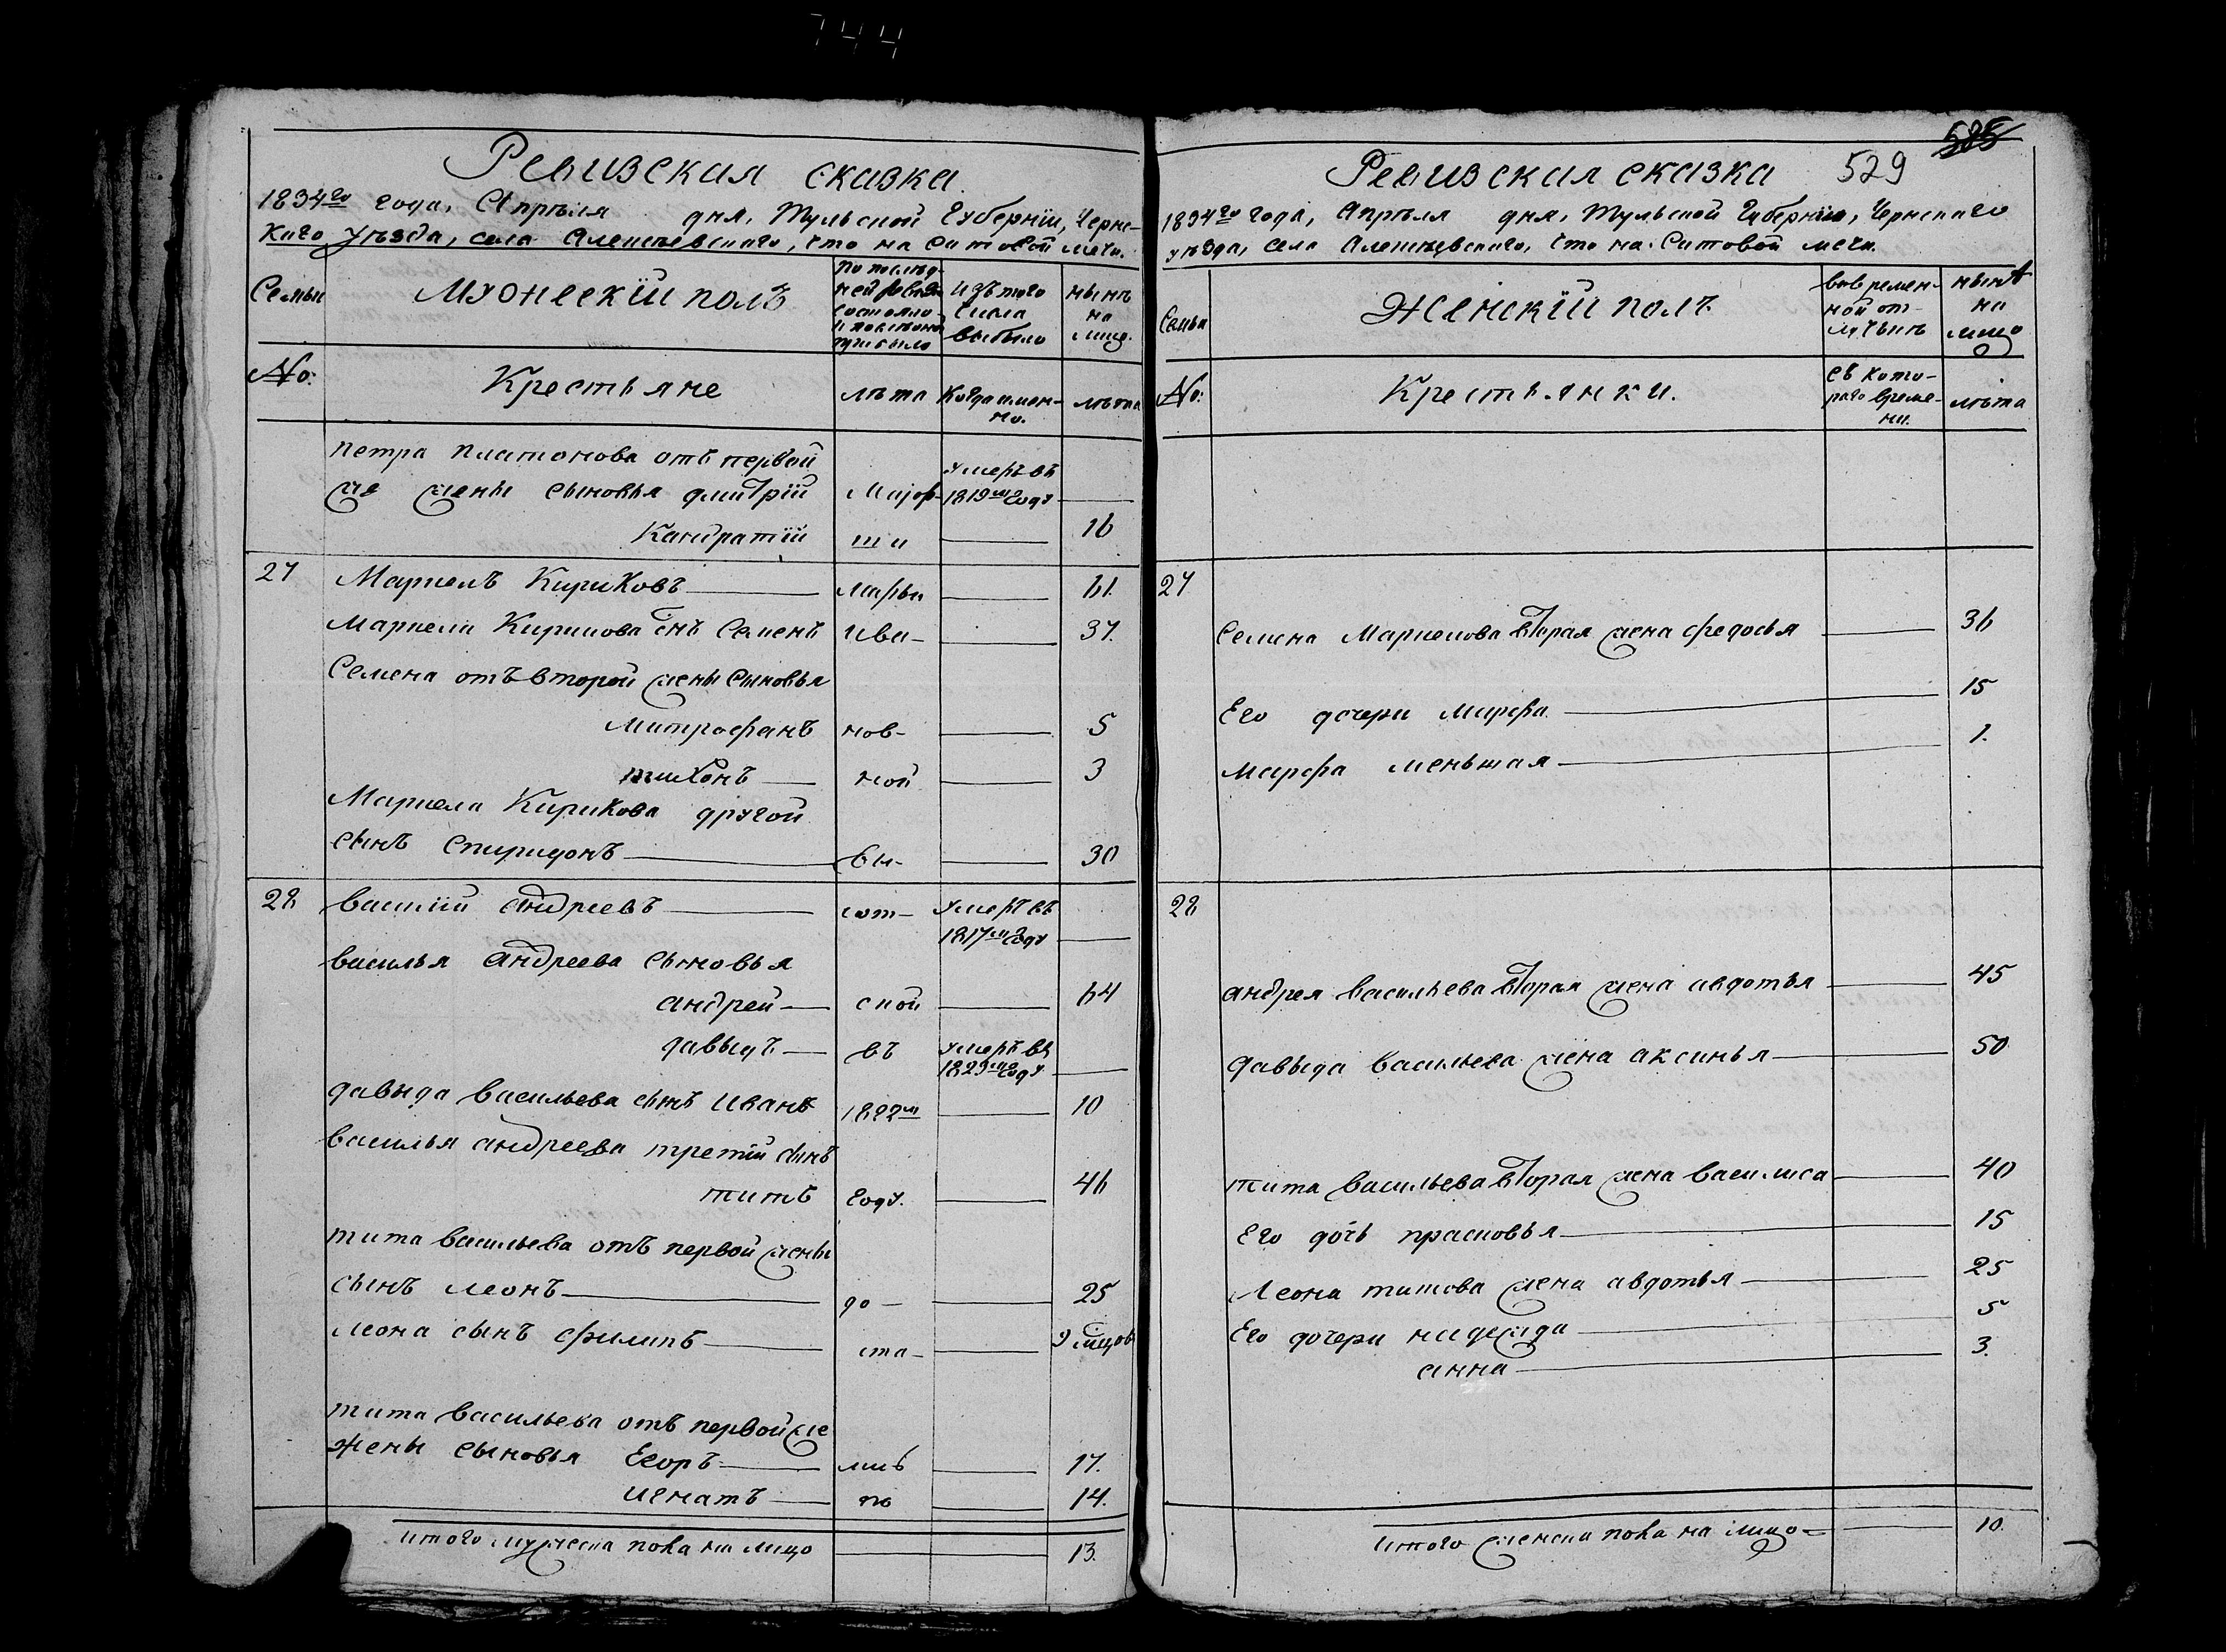 744
Ревизская сказка
1834го года, Апреля дня, Тульской Губернїи, Чернс-
каго уезда, села Алешневскаго, что на Ситовой мечи.
Семьи
Мужескїй полъ
По послед-
ней ревизїи
состояло
и после оной
прибыло
Изъ того
числа
выбыло
ныне
на
лицо.
No:
Крестьяне
лета
Когда имен-
но.
лета
петра платонова отъ первой
же жены сыновья дмитрїй
умеръ въ
1819м году
Кандратїй
16
27 Маркелъ Кириковъ 61.
Маркела Кирикова сынъ Семенъ Ива- 37.
Семена отъ второй жены сыновья
митрофанъ нов- 5
тихонъ ной 3
Маркела Кирикова другой
сынъ спиридонъ вы- 30
28 василїй андреевъ сот- умеръ въ
1817м году
василья андреева сыновья
андрей ской 64
давыдъ въ умеръ въ
1829м году
давыда васильева сынъ иванъ 1822м 10
василья андреева третїй сынъ
титъ году. 46
тита васильева отъ первой жены
сынъ леонъ до- 25
леона сынъ филипъ ста-
тита васильева отъ первой же
жены сыновья Егоръ 17.
игнатъ по 14.
итого мужеска пола на лицо 13.
585
529
Ревизская сказка
1834го года, Апреля дня, Тульской Губернїи, Чернскаго
уезда, села Алешневскаго, что на Ситовой мечи.
Семьи
Женскїй полъ
во времен-
ной от-
лучьке
ныне
на
лицо
No:
Крестьянки.
съ кото-
раго време-
ни.
лета
27
Семена Маркелова вторая жена федосья 36
Его дочери марфа 15
марфа меньшая 1.
28
андрея васильева вторая жена авдотья 45
давыда васильева жена аксинья 50
тита васильева вторая жена василиса 40
Его дочь прасковья 15
Леона титова жена авдотья 25
Его дочери надежда 5
анна 3.
итого женска пола на лицо 10.